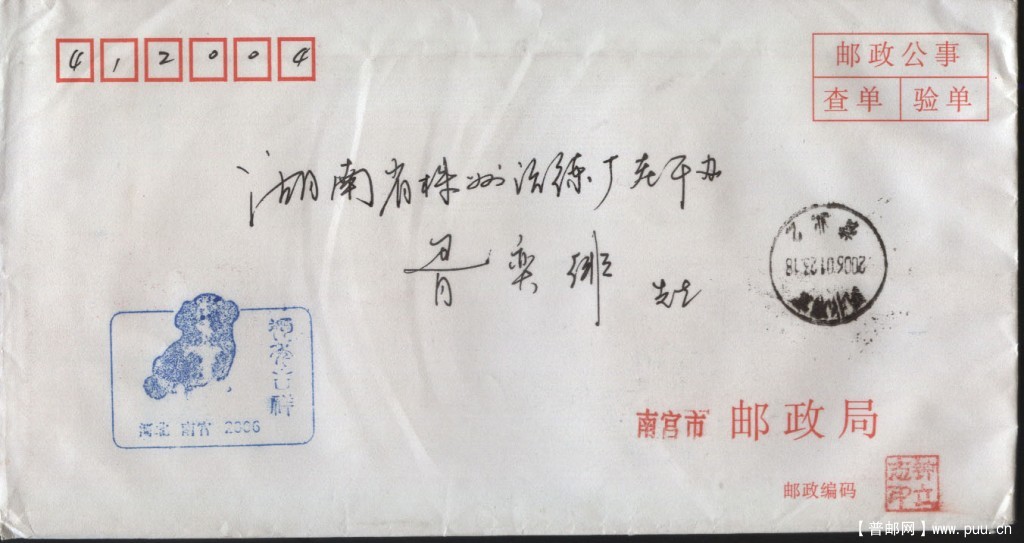 412004
邮政公事
查单 验单
湖南省株洲冶炼厂离干办
先生
2006.01.23.18
吉祥
河北 南宫 2006
南宫市 邮政局
邮政编码
【普邮网】www.puu.cn